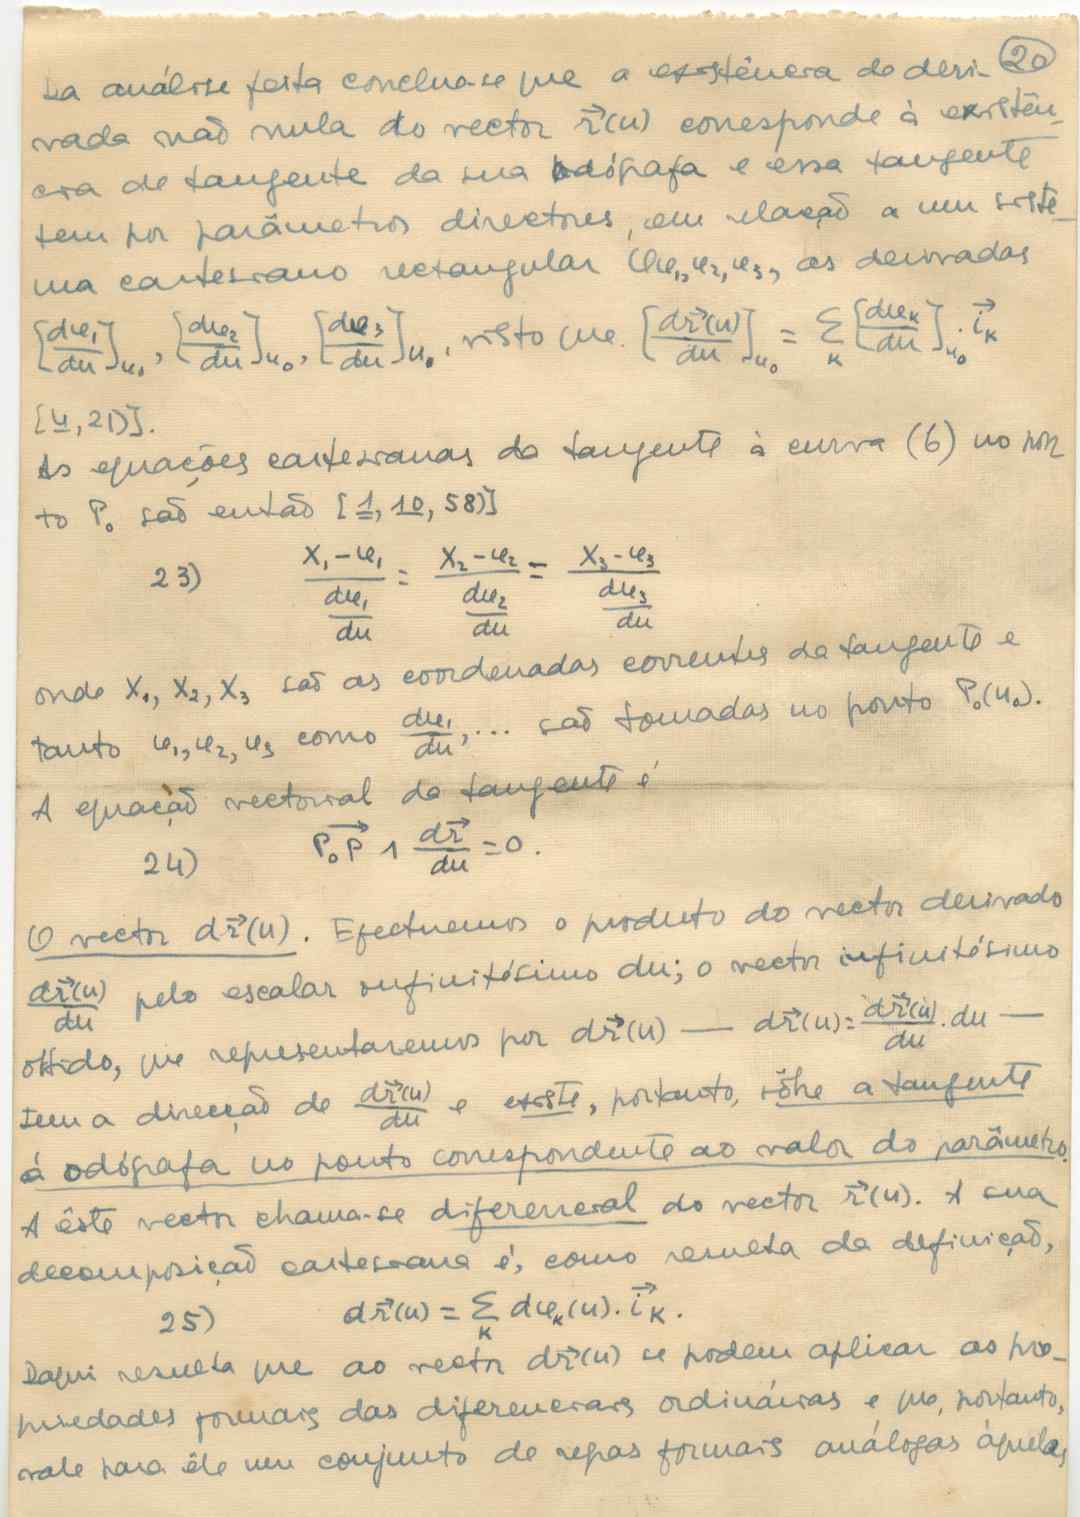 20
Da análise feita conclue-se que a existência de deri-
vada não nula do vector r⃗(u) corresponde à existên-
cia de tangente da sua odógrafa e essa tangente
tem por parâmetros directores, em relação a um siste-
ma cartesiano rectangular Oφ₁,φ₂,φ₃, as derivadas
[dφ₁/du]u₀, [dφ₂/du]u₀, [dφ₃/du]u₀, visto que [dr⃗(u)/du]u₀ = Σₖ [dφₖ/du]u₀ . i⃗ₖ
[4, 21)].
As equações cartesianas da tangente à curva (6) no pon
to P₀ são então [1, 10, 58)]
23) (X₁-φ₁)/(dφ₁/du) = (X₂-φ₂)/(dφ₂/du) = (X₃-φ₃)/(dφ₃/du)
onde X₁, X₂, X₃ são as coordenadas correntes da tangente e
tanto φ₁, φ₂, φ₃ como dφ₁/du, ... são tomadas no ponto P₀(u₀).
A equação vectorial da tangente é
24) P₀P⃗ ∧ dr⃗/du = 0.
O vector dr⃗(u). Efectuemos o produto do vector derivado
dr⃗(u)/du pelo escalar infinitésimo du; o vector infinitésimo
obtido, que representaremos por dr⃗(u) — dr⃗(u) = dr⃗(u)/du . du —
tem a direcção de dr⃗(u)/du e existe, portanto, sôbre a tangente
à odógrafa no ponto correspondente ao valor do parâmetro.
A êste vector chama-se diferencial do vector r⃗(u). A sua
decomposição cartesiana é, como resulta da definição,
25) dr⃗(u) = Σₖ dφₖ(u) . i⃗ₖ.
Daqui resulta que ao vector dr⃗(u) se podem aplicar as pro-
priedades formais das diferenciais ordinárias e que, portanto,
vale para êle um conjunto de regras formais análogas àquelas